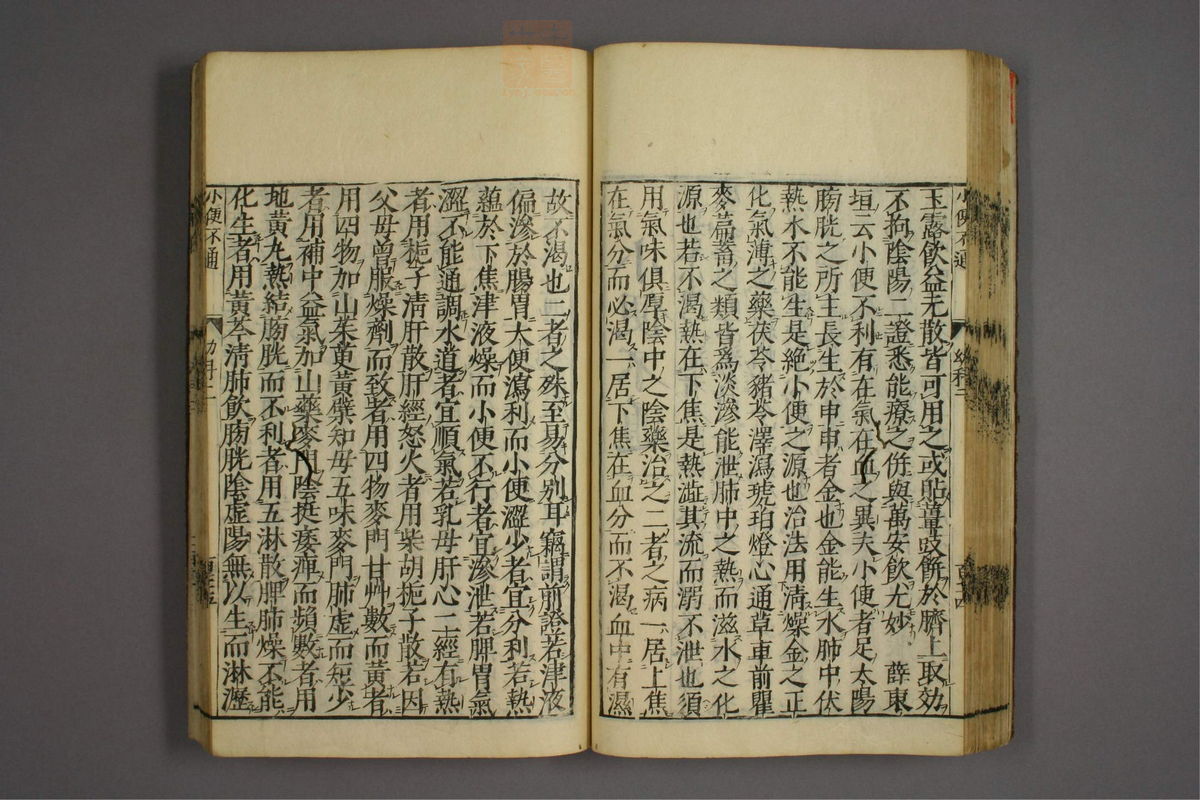 玉露飲益元散皆可用之或貼葦豉餅於臍上取効
不狗陰陽二證悉能療之併與萬安飲尤妙 薛東
垣云小便不利有在氣在血之異夫小便者足太陽
膀胱之所主長生於申申者金也金能生水肺中伏
熱水不能生是絶小便之源也治法用清燥金之正
化氣薄之藥茯苓豬苓澤瀉琥珀燈心通草車前瞿
麥萹蓄之類皆爲淡滲能泄肺中之熱而滋水之化
源也若不渴熱在下焦是熱澁其流而溺不泄也須
用氣味俱厚陰中之陰藥治之二者之病一居上焦
在氣分而必渴一居下焦在血分而不渴血中有濕
小便不通
幼科二
故不渴也二者之殊至易分別耳竊謂前證若津液
偏滲於腸胃大便瀉利而小便澀少者宜分利若熱
蘊於下焦津液燥而小便不行者宜滲泄若脾胃氣
澀不能通調水道者宜順氣若乳母肝心二經有熱
者用梔子清肝散肝經怒火者用柴胡梔子散若因
父母曾服燥劑而致者用四物麥門甘艸數而黄者
用四物加山茱萸黄蘗知母五味麥門肺虚而短少
者用補中益氣加山藥麥門陰挺痿痺而頻數者用
地黄丸熱結膀胱而不利者用五淋散脾肺燥不能
化生者用黄芩清肺飲膀胱陰虚陽無以生而淋瀝
小便不通